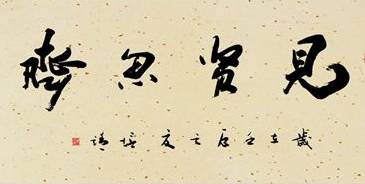 見賢思齊
歲在壬辰之夏